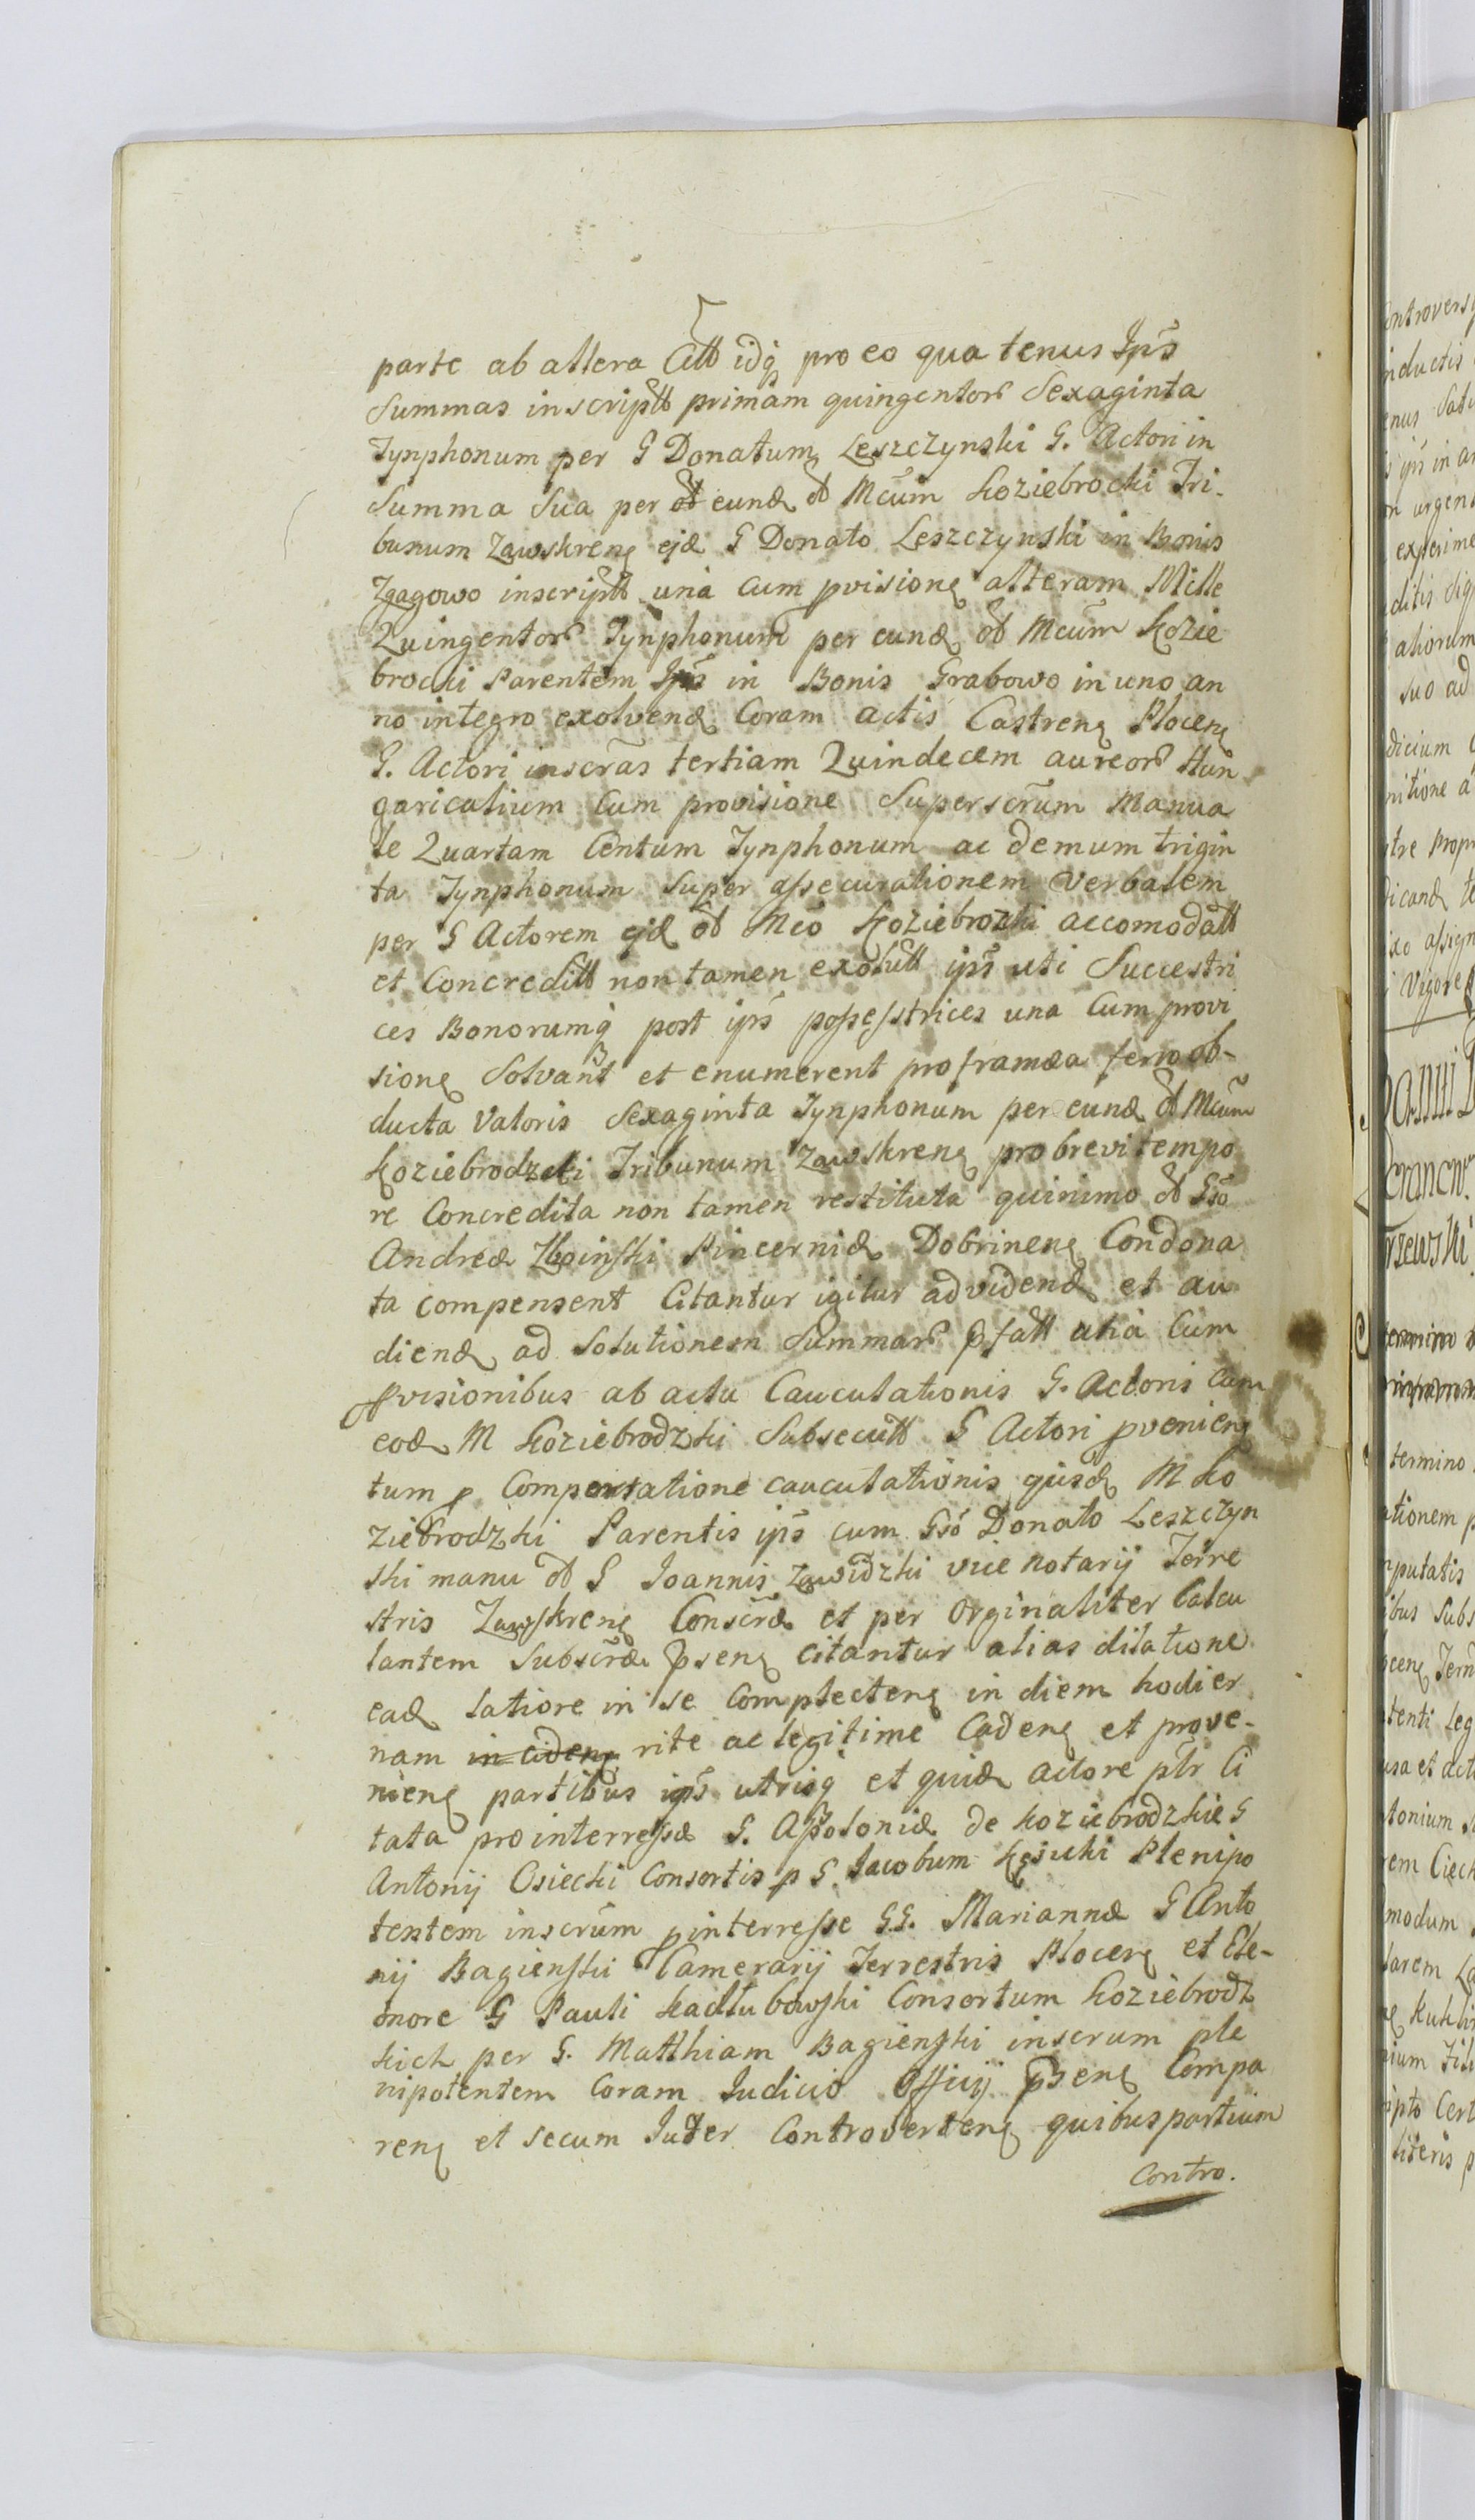 parte ab altera Citt idq pro eo qua tenus Ips̃
Summas inscriptt primam quingentor Sexaginta
Tynphonum per G Donatum Leszczynski G. Actori in
Summa Sua per eund ol Mcum Koziebrocki Tri-
bunum Zawskren ejd G Donato Leszczynski in Bonis
Zgagowo inscriptt una cum pvisione alteram Mille
Quingentor Tynphonum per eund ol Mcum Kozie
brocki Parentem Ips̃ in Bonis Grabowo in uno an
no integro exolvend Coram actis Castren Plocen
G. Actori inscras tertiam Quindecem aureor Hun
garicalium Cum provisione Superscrum Manua
le Quartam Centum Tynphonum ac demum trigin
ta Tynphonum Super assecurationem verbalem
per G Actorem ejd ol Mco Koziebrocki accomodatt
et Concreditt non tamen exolutt ips̃ uti Succestri
ces Bonorumq post ips̃ possesstrices una Cum provi
sione Solvant et enumerent pro framea ferro ob-
ducta Valoris Sexaginta Tynphonum per eund ol Mcum
Koziebrodzki Tribunum Zawskren pro brevi tempo
re Concredita non tamen restituta quinimo ol Gso
Andreæ Zboinski Pincernid Dobrinen Condona
ta compensent Citantur igitur ad vidend et au
diend ad Solutionem Summar pfatt una Cum
pvisionibus ab actu Cauculationis G. Actoris Cum
eod M Koziebrodzki Subsecutt G Actori pvenien
tum p Comportatione cauculationis ejusd M Ko
ziebrodzki Parentis ips̃ cum Gso Donato Leszczyn
ski manu ol G Joannis Zawidzki vice notarij Terre
stris Zawskren Conscræ et per Orginaliter Calcu
lantem Subscræ psen citantur alias dilatione
ead latiore in se Complecten in diem hodier
nam in ciden rite ac legitime Caden et prove-
nien partibus ips̃ utrisq et quid actore ptr Ci
tata pro interresse G. Appoloniæ de Koziebrodzkie G
Antonij Osiecki Consortis p G. Jacobum Plenipo
tentem inscrum pinterresse G.G. Mariannæ G Anto
nij Bagienski Camerarij Terrestris Plocen et Ele-
onore G Pauli Kadlubowski Consortum Koziebrodz
kich per G. Matthiam Bagienski inscrum ple
nipotentem Coram Judicio Officij psen Compa
ren et secum Juter Controverten quibus partium
Contro.